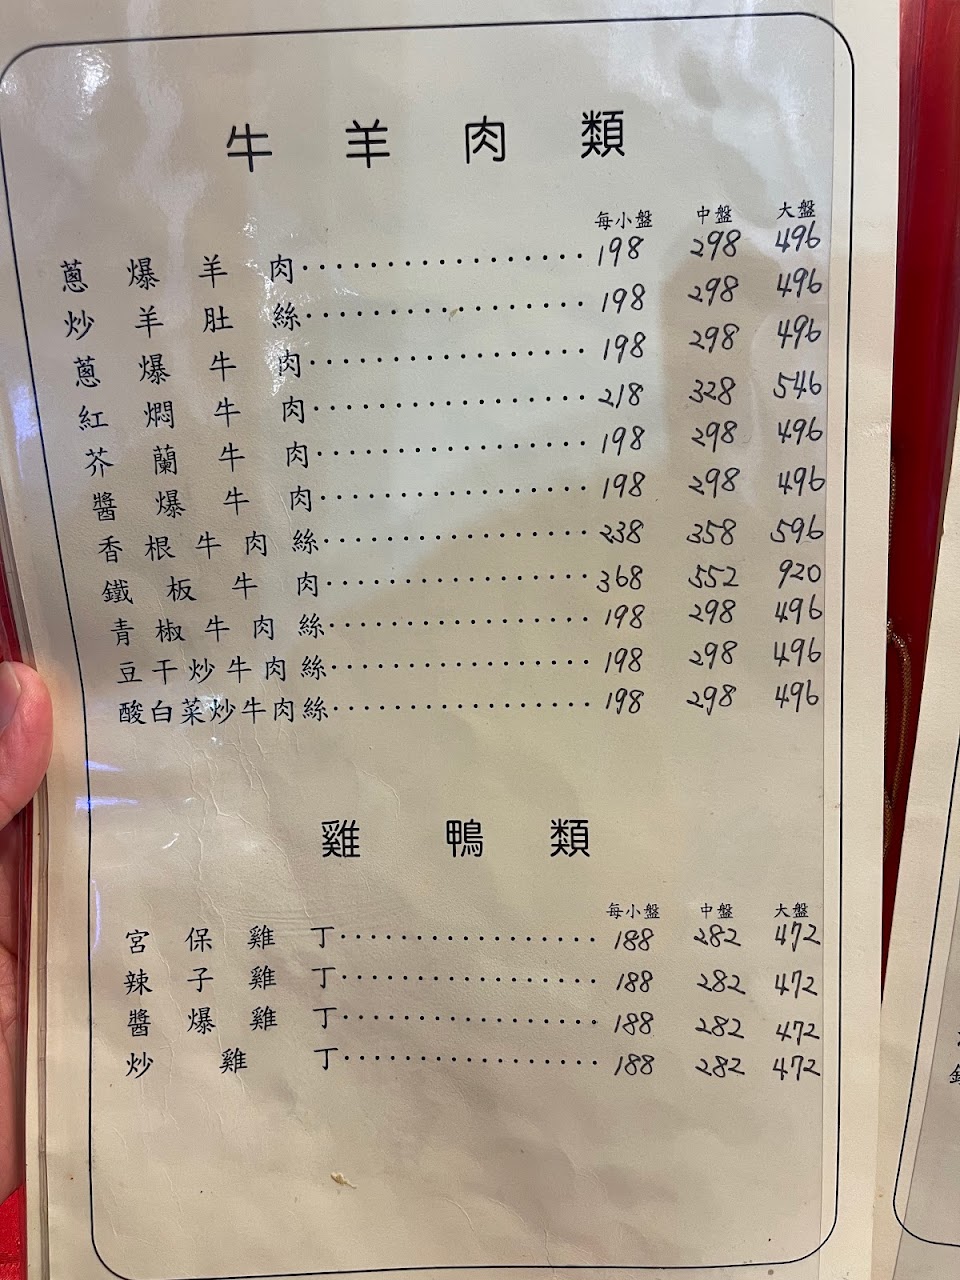 牛羊肉類
每小盤 中盤 大盤
蔥爆羊肉 198 298 496
炒羊肚絲 198 298 496
蔥爆牛肉 198 298 496
紅燜牛肉 218 328 546
芥蘭牛肉 198 298 496
醬爆牛肉 198 298 496
香根牛肉絲 238 358 596
鐵板牛肉 368 552 920
青椒牛肉絲 198 298 496
豆干炒牛肉絲 198 298 496
酸白菜炒牛肉絲 198 298 496
雞鴨類
每小盤 中盤 大盤
宮保雞丁 188 282 472
辣子雞丁 188 282 472
醬爆雞丁 188 282 472
炒雞丁 188 282 472